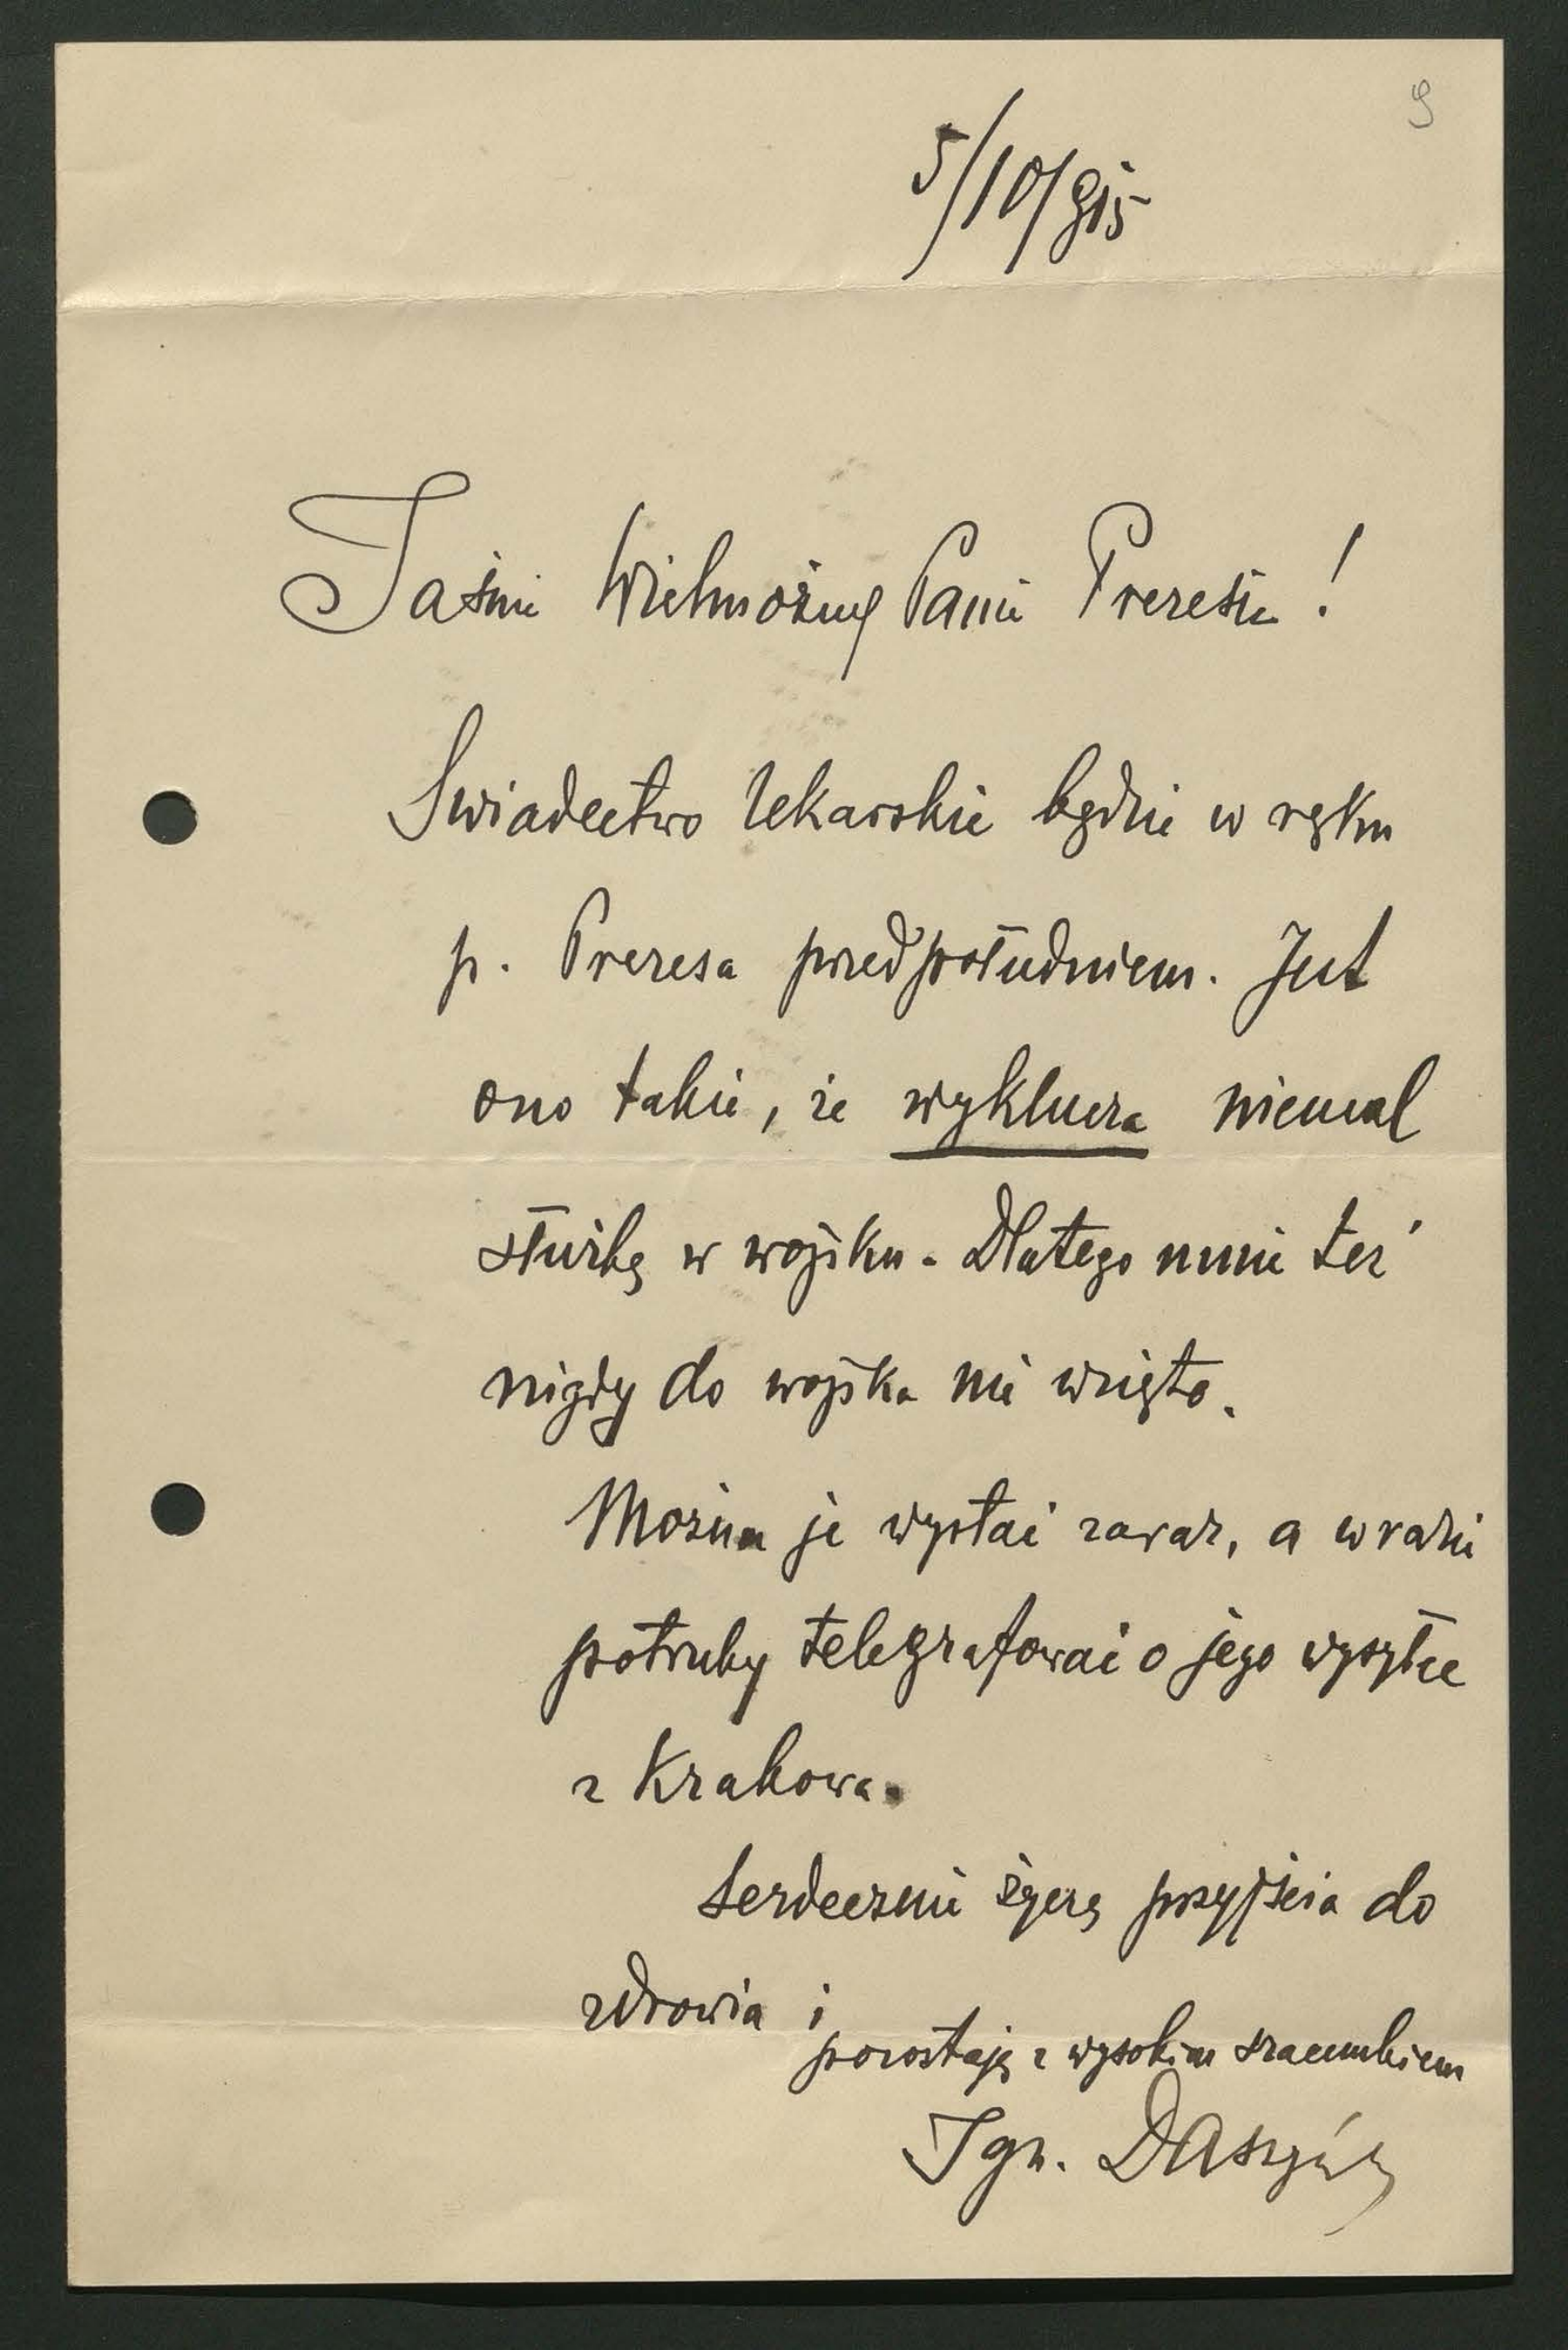 9
5/10/915
Jaśnie Wielmożny Panie Prezesie!
Świadectwo lekarskie będzie w ręku
p. Prezesa przedpołudniem. Jest
ono takie, że wyklucza niemal
służbę w wojsku. Dlatego mnie też
nigdy do wojska nie wzięto.
Można je wysłać zaraz, a w razie
potrzeby telegrafować o jego wysyłce
z Krakowa.
Serdecznie życzę przyjścia do
zdrowia i
pozostaję z wysokim szacunkiem
Ign. Daszyński